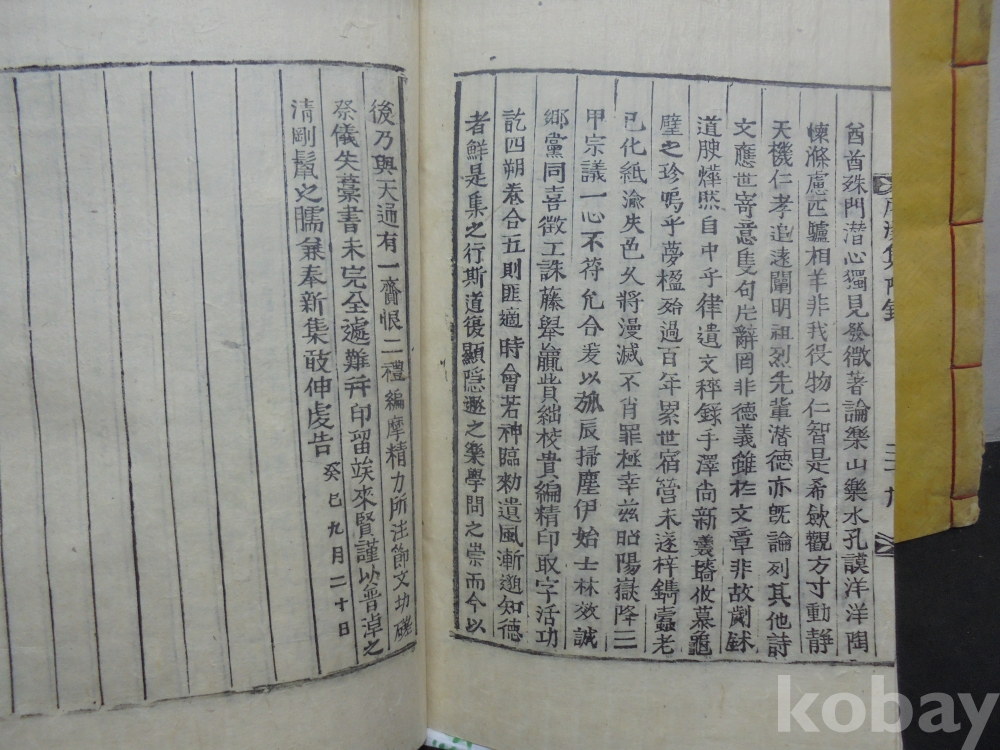 酋首殊門潛心獨見發微著論樂山樂水孔謨洋洋陶
悚滌慮匹驢相羊非我役物仁智是希斂觀方寸動靜
天機仁孝追遠闡明祖烈先輩潜德亦旣論列其他詩
文應世寄意隻句片辭罔非德義雖於文章非故劌鉥
道腴燁然自中乎律遺文稡錄手澤尚新羹墻攸慕龜
璧之珍嗚乎夢楹殆過百年累世宿營未遂梓鐫蠹老
已化紙渝失色久將漫滅不肖罪極幸玆昭陽嶽降三
甲宗議一心不符允合爰以孤辰掃塵伊始士林效誠
鄉黨同喜徵工誅藤擧贏貲絀校貴編精印取字活功
訖四朔卷合五則匪適時會若神臨勑遺風漸邈知德
者鮮是集之行斯道復顯隱遯之樂學問之崇而今以
後乃與天通有一齎恨二禮編摩精力所注節文功磯
祭儀失藁書未完全遽難幷印留竢來賢謹以普淖之
清剛鬣之臑兼奉新集敢伸虔告
癸巳九月二十日
kobay